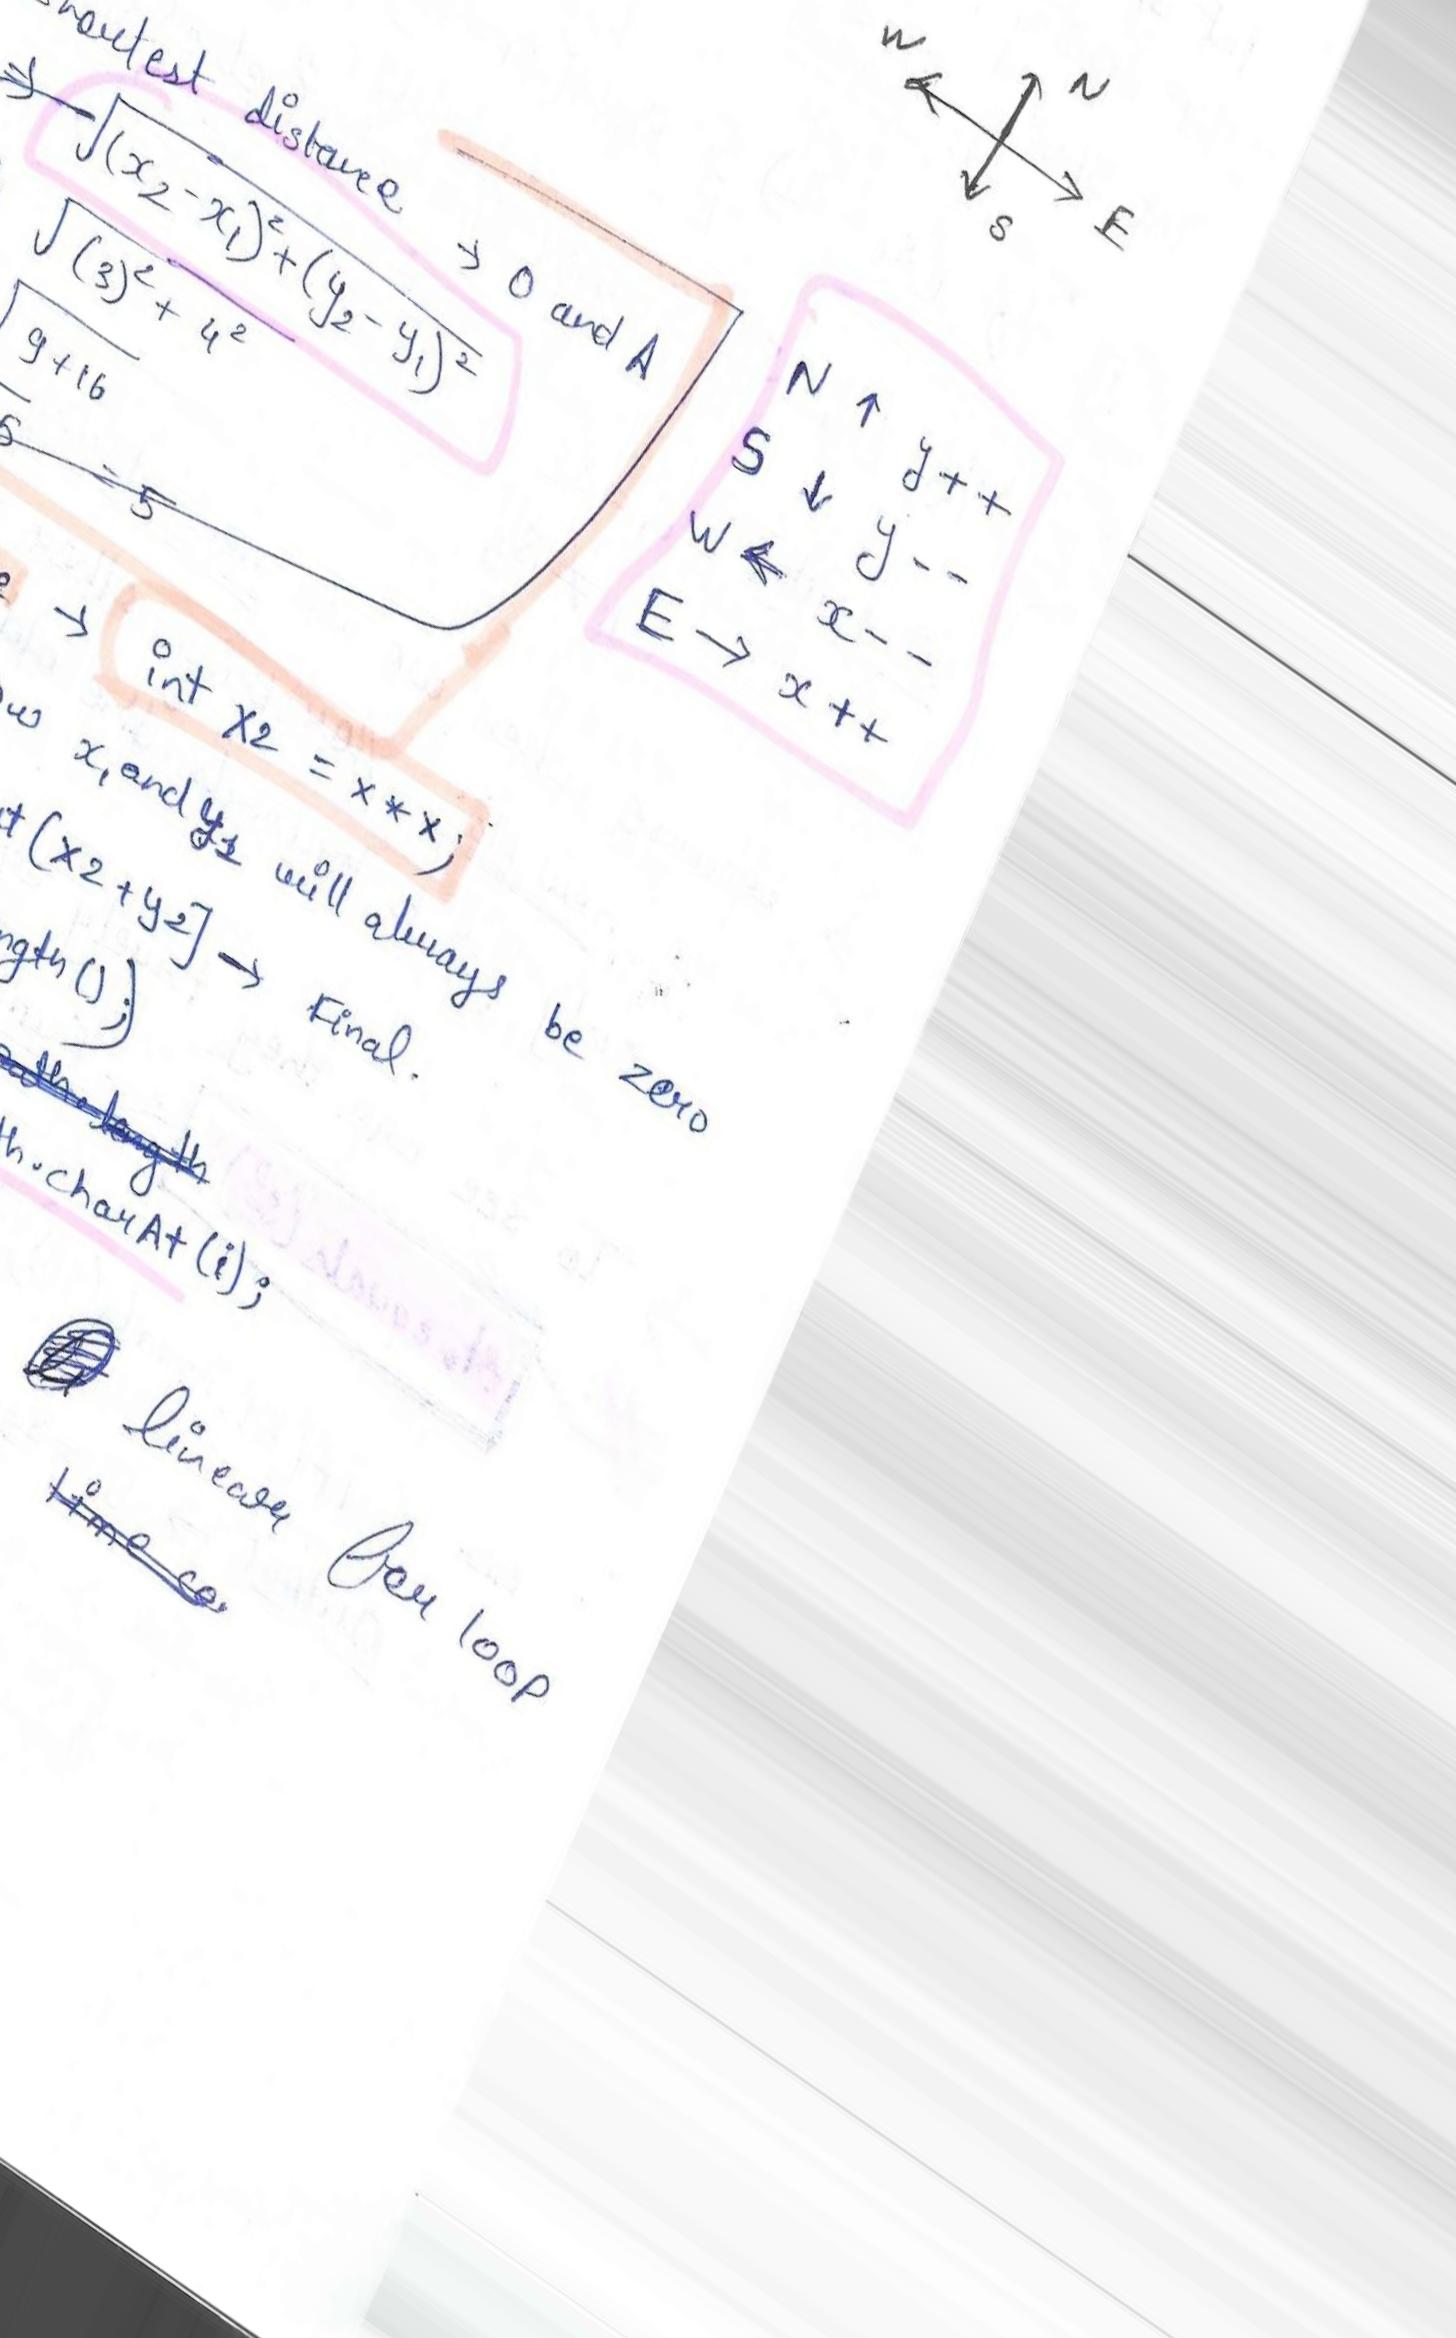 W
N
S
E
distance → O and A
⇒ √(x₂-x₁)²+(y₂-y₁)²
√(3)²+4²
√9+16
5
N ↑ y++
S ↓ y--
W ← x--
E → x++
→ int X2 = x*x;
x₁ and y₁ will always be zero
(x2+y2] → Final.
ngth();
ath.length
th.charAt(i);
linear for loop
time co.